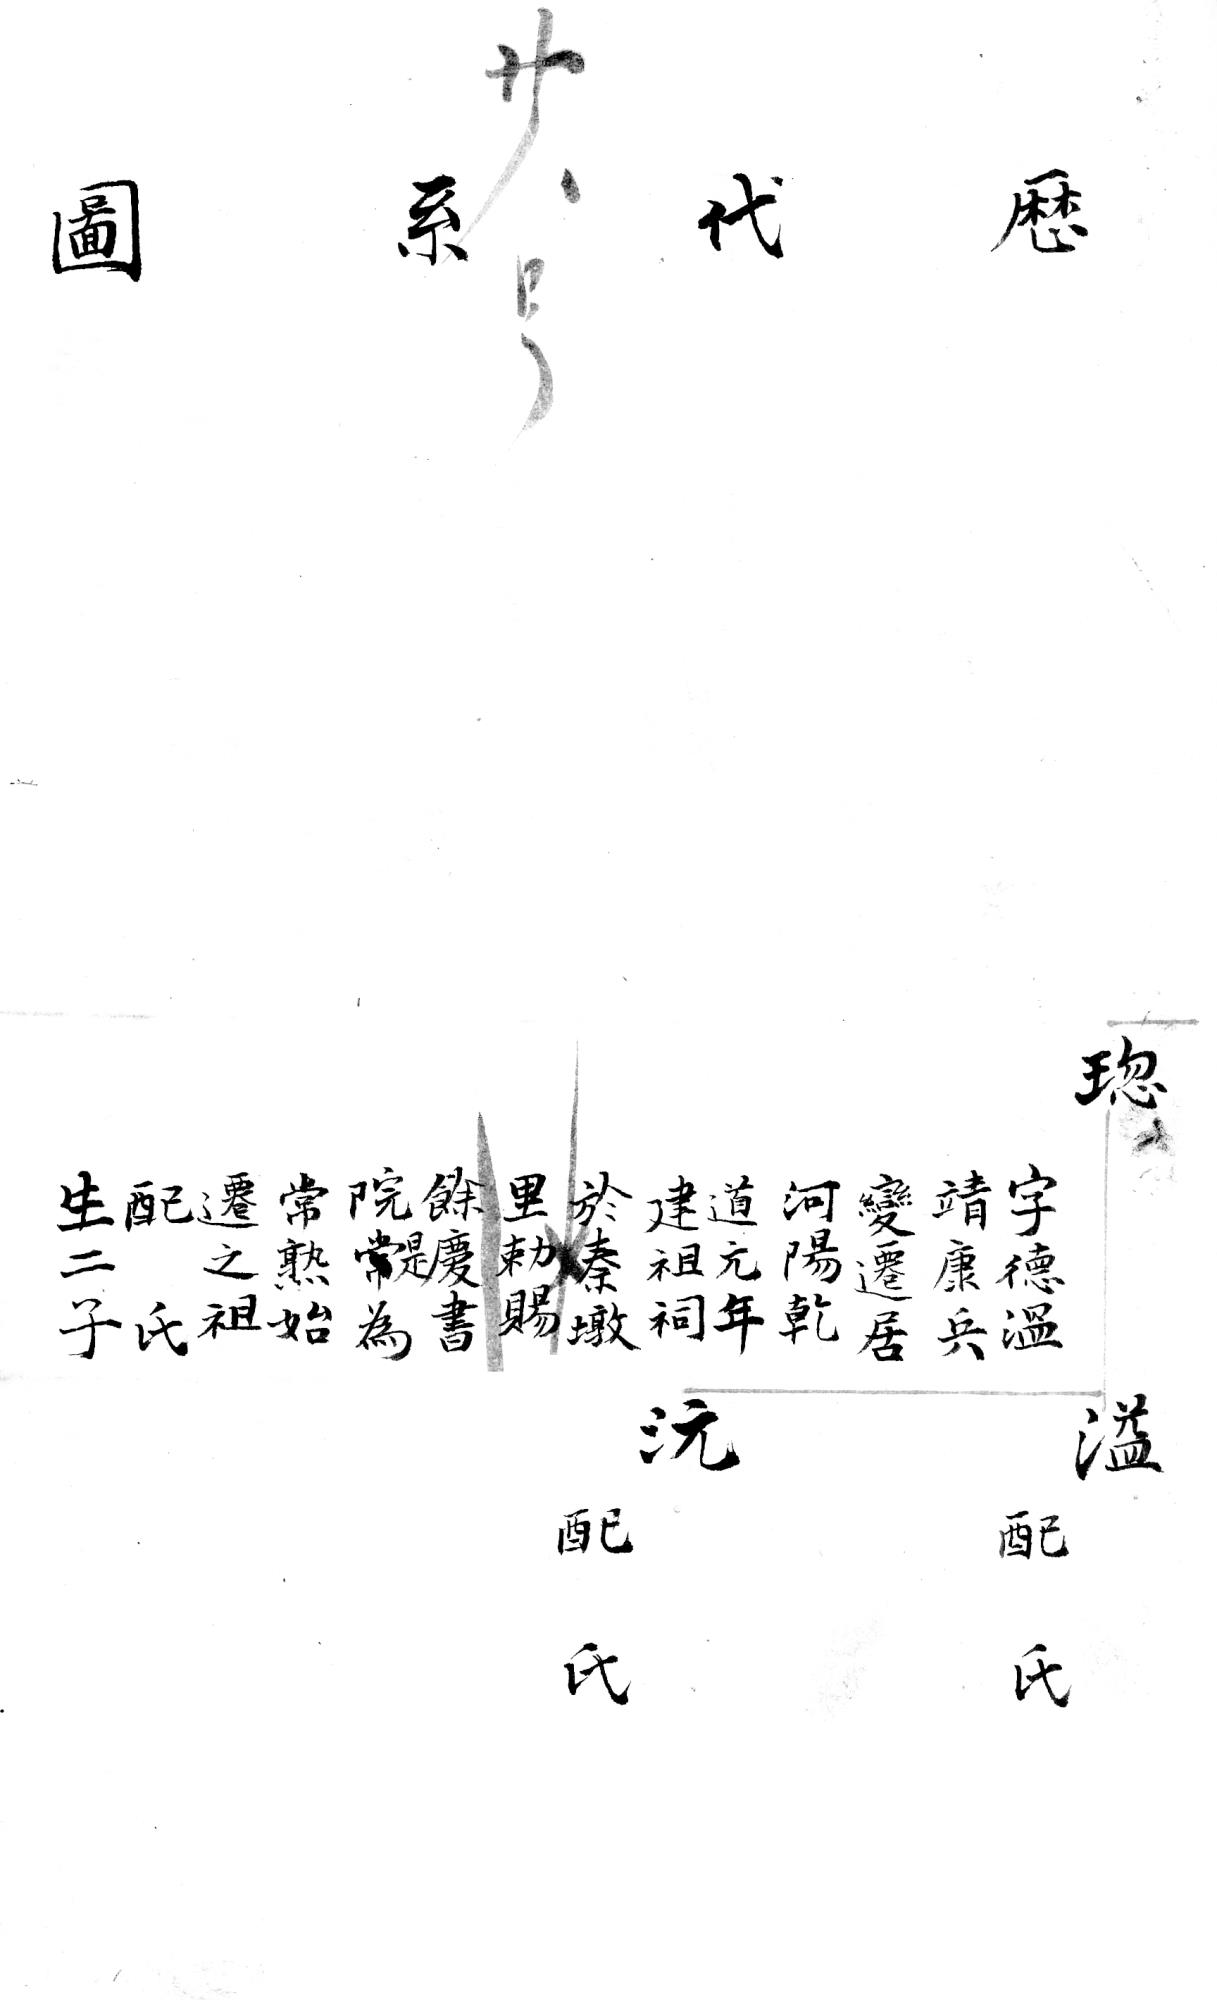 歴代系圖
廿八号
璁
字德溫
靖康兵
變遷居
河陽乾
道元年
建祖祠
於秦墩
里勅賜
餘慶書
院是常為
常熟始
遷之祖
配 氏
生二子
溢
配 氏
沅
配 氏